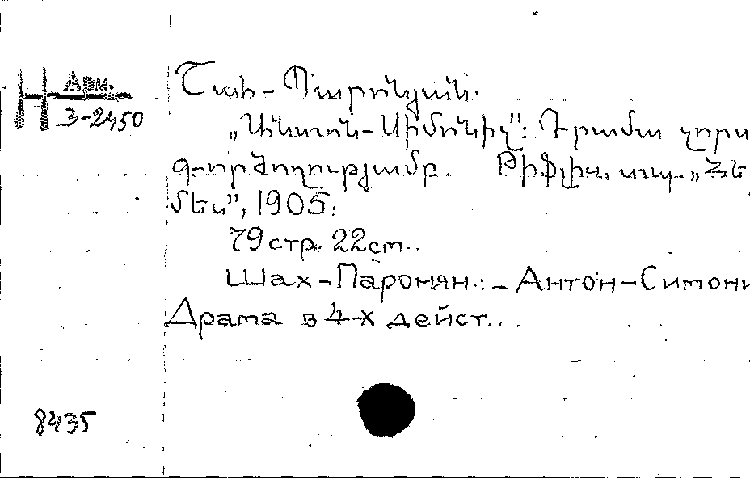 Н Арм.
3-2450
Շահ-Պարոնյան.
„Անտոն-Սիմոնիչ“: Դրամա չորս
գործողությամբ. Թիֆլիս, տպ. „Հեր
մես“, 1905:
79 стр. 22 см.
Шах-Паронян. - Антон-Симони
Драма в 4-х дейст.
8435